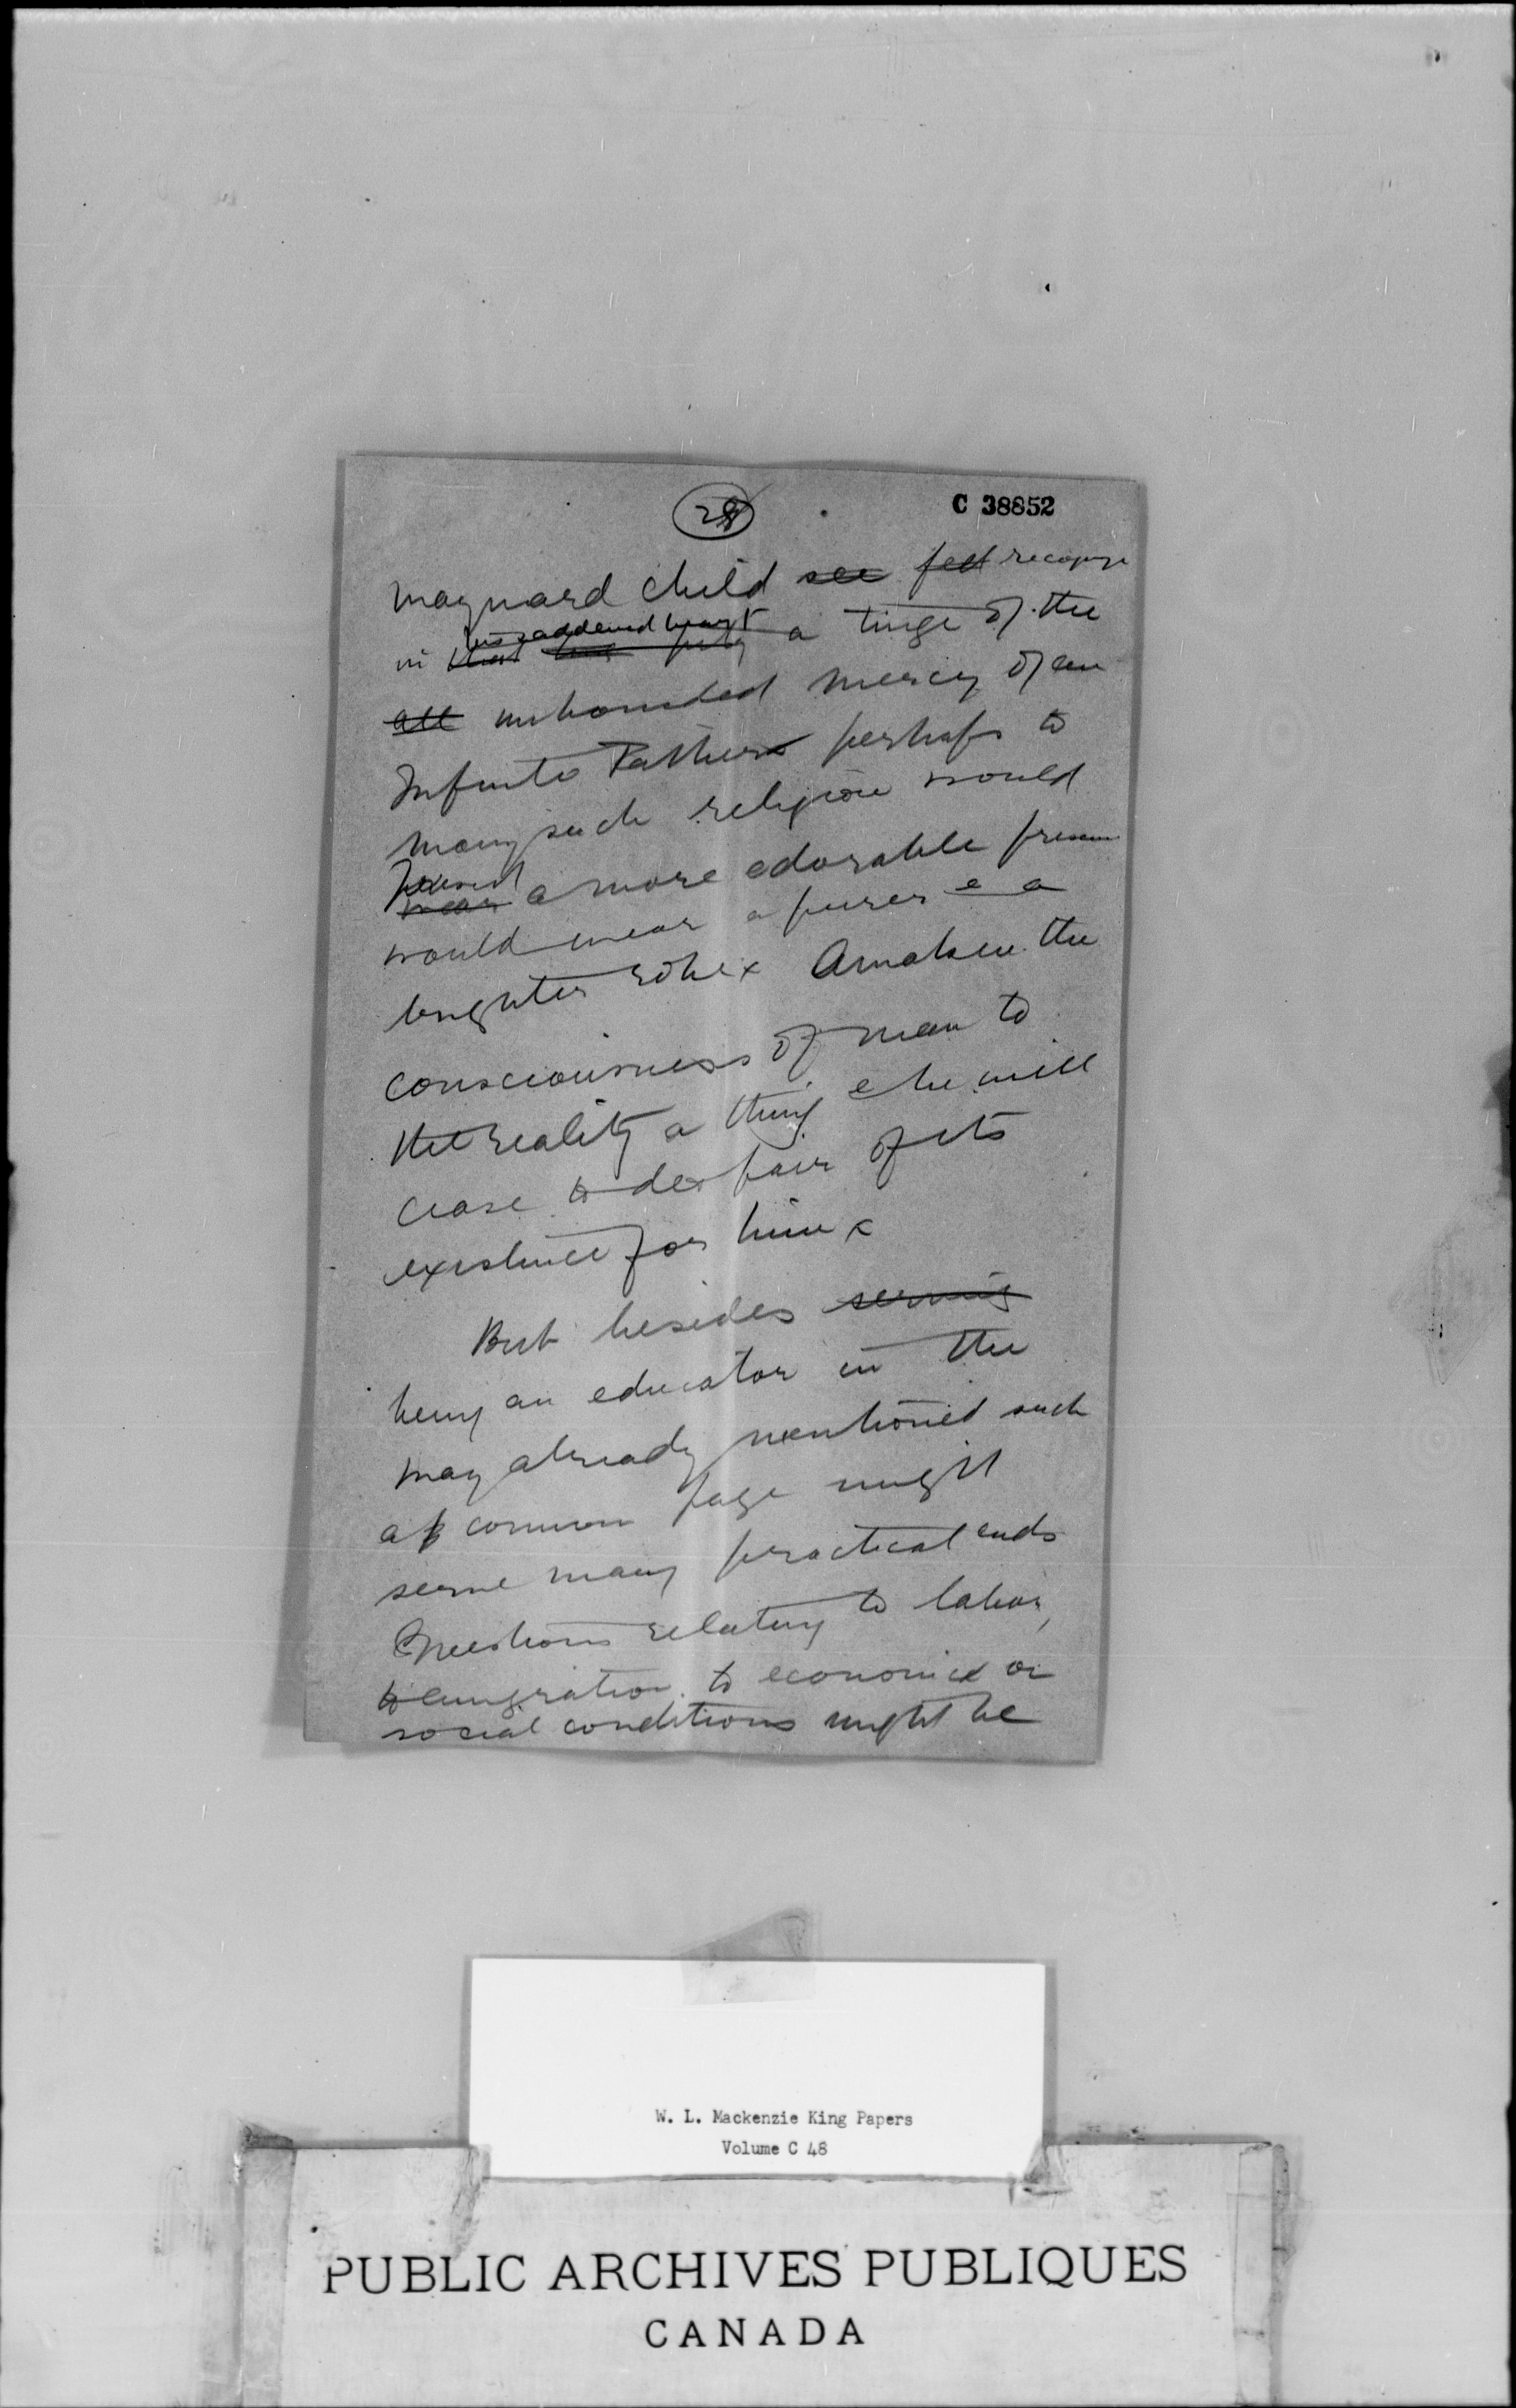 28
C 38852
wayward child ~~see~~ ~~feel~~ recognize
in his saddened heart a tinge of the
~~all~~ unbounded mercy of an
Infinite Father x perhaps to
many such religion would
a more adorable
would wear a purer & a
brighter robe x Awaken the
consciousness of man to
the reality a thing & he will
cease to despair of its
existence for him x
But besides ~~serving~~
being an educator in the
way already mentioned such
a common page might
serve many practical ends
Questions relating to labor,
to emigration, to economic or
social conditions might be
W. L. Mackenzie King Papers
Volume C 48
PUBLIC ARCHIVES PUBLIQUES
CANADA